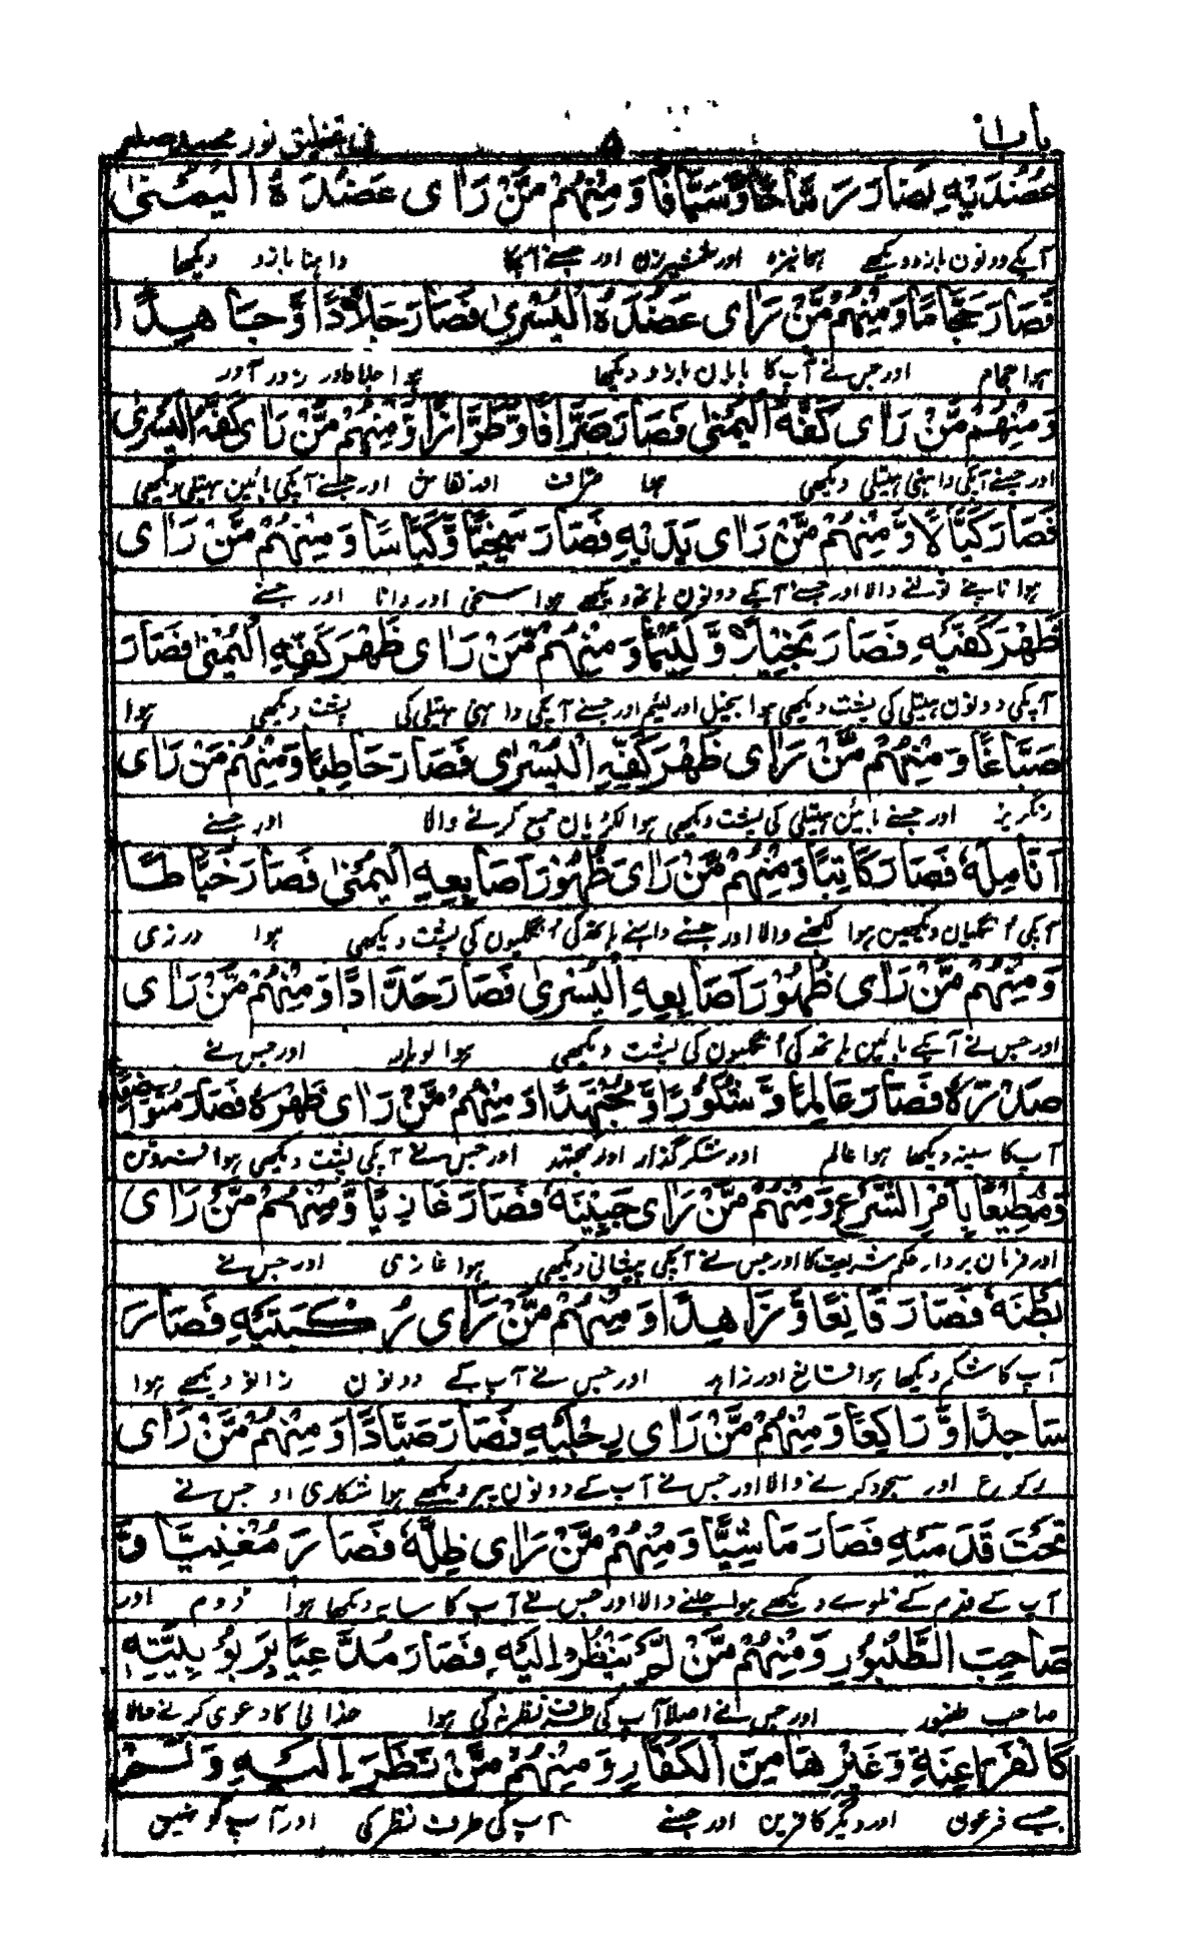 باب ۱ ۵ فی تخلیق نور محمد صلعم
عَضُدَيْهِ فَصَارَ رَمَّاحًا وَّسَيَّافًا وَمِنْهُمْ مَّنْ رَاٰى عَضُدَهُ الْيُمْنٰى
آپکے دونون بازو دیکھے ہوا نیزہ اور شمشیر زن اور جسنے آپکا داہنا بازو دیکھا
فَصَارَ حَجَّامًا وَمِنْهُمْ مَّنْ رَاٰى عَضُدَهُ الْيُسْرٰى فَصَارَ جَلَّادًا وَّجَاهِدًا
ہوا حجام اور جس نے آپ کا بایان بازو دیکھا ہوا جلاد اور زور آور
وَمِنْهُمْ مَّنْ رَاٰى كَفَّهُ الْيُمْنٰى فَصَارَ صَرَّافًا وَّطَرَّازًا وَّمِنْهُمْ مَّنْ رَاٰى كَفَّهُ الْيُسْرٰى
اور جسنے آپکی داہنی ہتیلی دیکھی ہوا صراف اور نقاش اور جسنے آپکی بائین ہتیلی دیکھی
فَصَارَ كَيَّالًا وَّمِنْهُمْ مَّنْ رَاٰى يَدَيْهِ فَصَارَ سَخِيًّا وَّكَيَّاسًا وَمِنْهُمْ مَّنْ رَاٰى
ہوا ناپنے تولنے والا اور جسنے آپکے دونون ہاتھ دیکھے ہوا سخی اور دانا اور جسنے
ظَهْرَ كَفَّيْهِ فَصَارَ بَخِيْلًا وَّلَئِيْمًا وَمِنْهُمْ مَّنْ رَاٰى ظَهْرَ كَفِّهِ الْيُمْنٰى فَصَارَ
آپکی دونون ہتیلی کی پشت دیکھی ہوا بخیل اور لئیم اور جسنے آپکی داہنی ہتیلی کی پشت دیکھی ہوا
صَبَّاغًا وَمِنْهُمْ مَّنْ رَاٰى ظَهْرَ كَفِّهِ الْيُسْرٰى فَصَارَ حَاطِبًا وَمِنْهُمْ مَنْ رَاٰى
رنگریز اور جسنے بائین ہتیلی کی پشت دیکھی ہوا لکڑیان جمع کرنے والا اور جسنے
اَنَامِلَهٗ فَصَارَ كَاتِبًا وَمِنْهُمْ مَّنْ رَاٰى ظُهُوْرَ اَصَابِعِهِ الْيُمْنٰى فَصَارَ خَيَّاطًا
آپکی اُنگلیان دیکھین ہوا لکھنے والا اور جسنے داہنے ہاتھ کی اُنگلیون کی پشت دیکھی ہوا درزی
وَمِنْهُمْ مَّنْ رَاٰى ظُهُوْرَ اَصَابِعِهِ الْيُسْرٰى فَصَارَ حَدَّادًا وَمِنْهُمْ مَّنْ رَاٰى
اور جس نے آپکے بائین ہاتھ کی اُنگلیون کی پشت دیکھی ہوا لوہار اور جس نے
صَدْرَهٗ فَصَارَ عَالِمًا وَّشَكُوْرًا وَّمُجْتَهِدًا وَمِنْهُمْ مَّنْ رَاٰى ظَهْرَهٗ فَصَارَ مُتَوَاضِعًا
آپ کا سینہ دیکھا ہوا عالم اور شکر گذار اور مجتہد اور جس نے آپ کی پشت دیکھی ہوا
وَمُطِيْعًا بِاَمْرِ الشَّرْعِ وَمِنْهُمْ مَّنْ رَاٰى جَبِيْنَهٗ فَصَارَ غَازِيًا وَّمِنْهُمْ مَّنْ رَاٰى
اور فرمان بردار حکم شریعت کا اور جس نے آپکی پیشانی دیکھی ہوا غازی اور جس نے
بَطْنَهٗ فَصَارَ قَانِعًا وَّزَاهِدًا وَمِنْهُمْ مَّنْ رَاٰى رُكْبَتَيْهِ فَصَارَ
آپ کا شکم دیکھا ہوا قانع اور زاہد اور جس نے آپ کے دونون زانو دیکھے ہوا
سَاجِدًا وَّرَاكِعًا وَمِنْهُمْ مَّنْ رَاٰى رِجْلَيْهِ فَصَارَ صَيَّادًا وَمِنْهُمْ مَّنْ رَاٰى
رکوع اور سجود کرنے والا اور جس نے آپ کے دونون پیر دیکھے ہوا شکاری او جس نے
تَحْتَ قَدَمَيْهِ فَصَارَ مَاشِيًّا وَمِنْهُمْ مَّنْ رَاٰى ظِلَّهٗ فَصَارَ مُغَنِّيًا وَّ
آپ کے قدم کے تلوے دیکھے ہوا چلنے والا اور جس نے آپ کا سایہ دیکھا ہوا ڈوم اور
صَاحِبَ الطُّنْبُوْرِ وَمِنْهُمْ مَّنْ لَّمْ يَنْظُرْ اِلَيْهِ فَصَارَ مُدَّعِيًا بِرُبُوْبِيَّتِهٖ
صاحب طنبور اور جس نے اصلا آپ کی طرف نظر نہ کی ہوا خدائی کا دعوی کرنے والا
كَالْفَرَاعِنَةِ وَغَيْرِهَا مِنَ الْكُفَّارِ وَمِنْهُمْ مَّنْ نَظَرَ اِلَيْهِ وَلَمْ
جیسے فرعون اور دیگر کافرین اور جسنے آپ کی طرف نظر کی اور آپ کو نہین